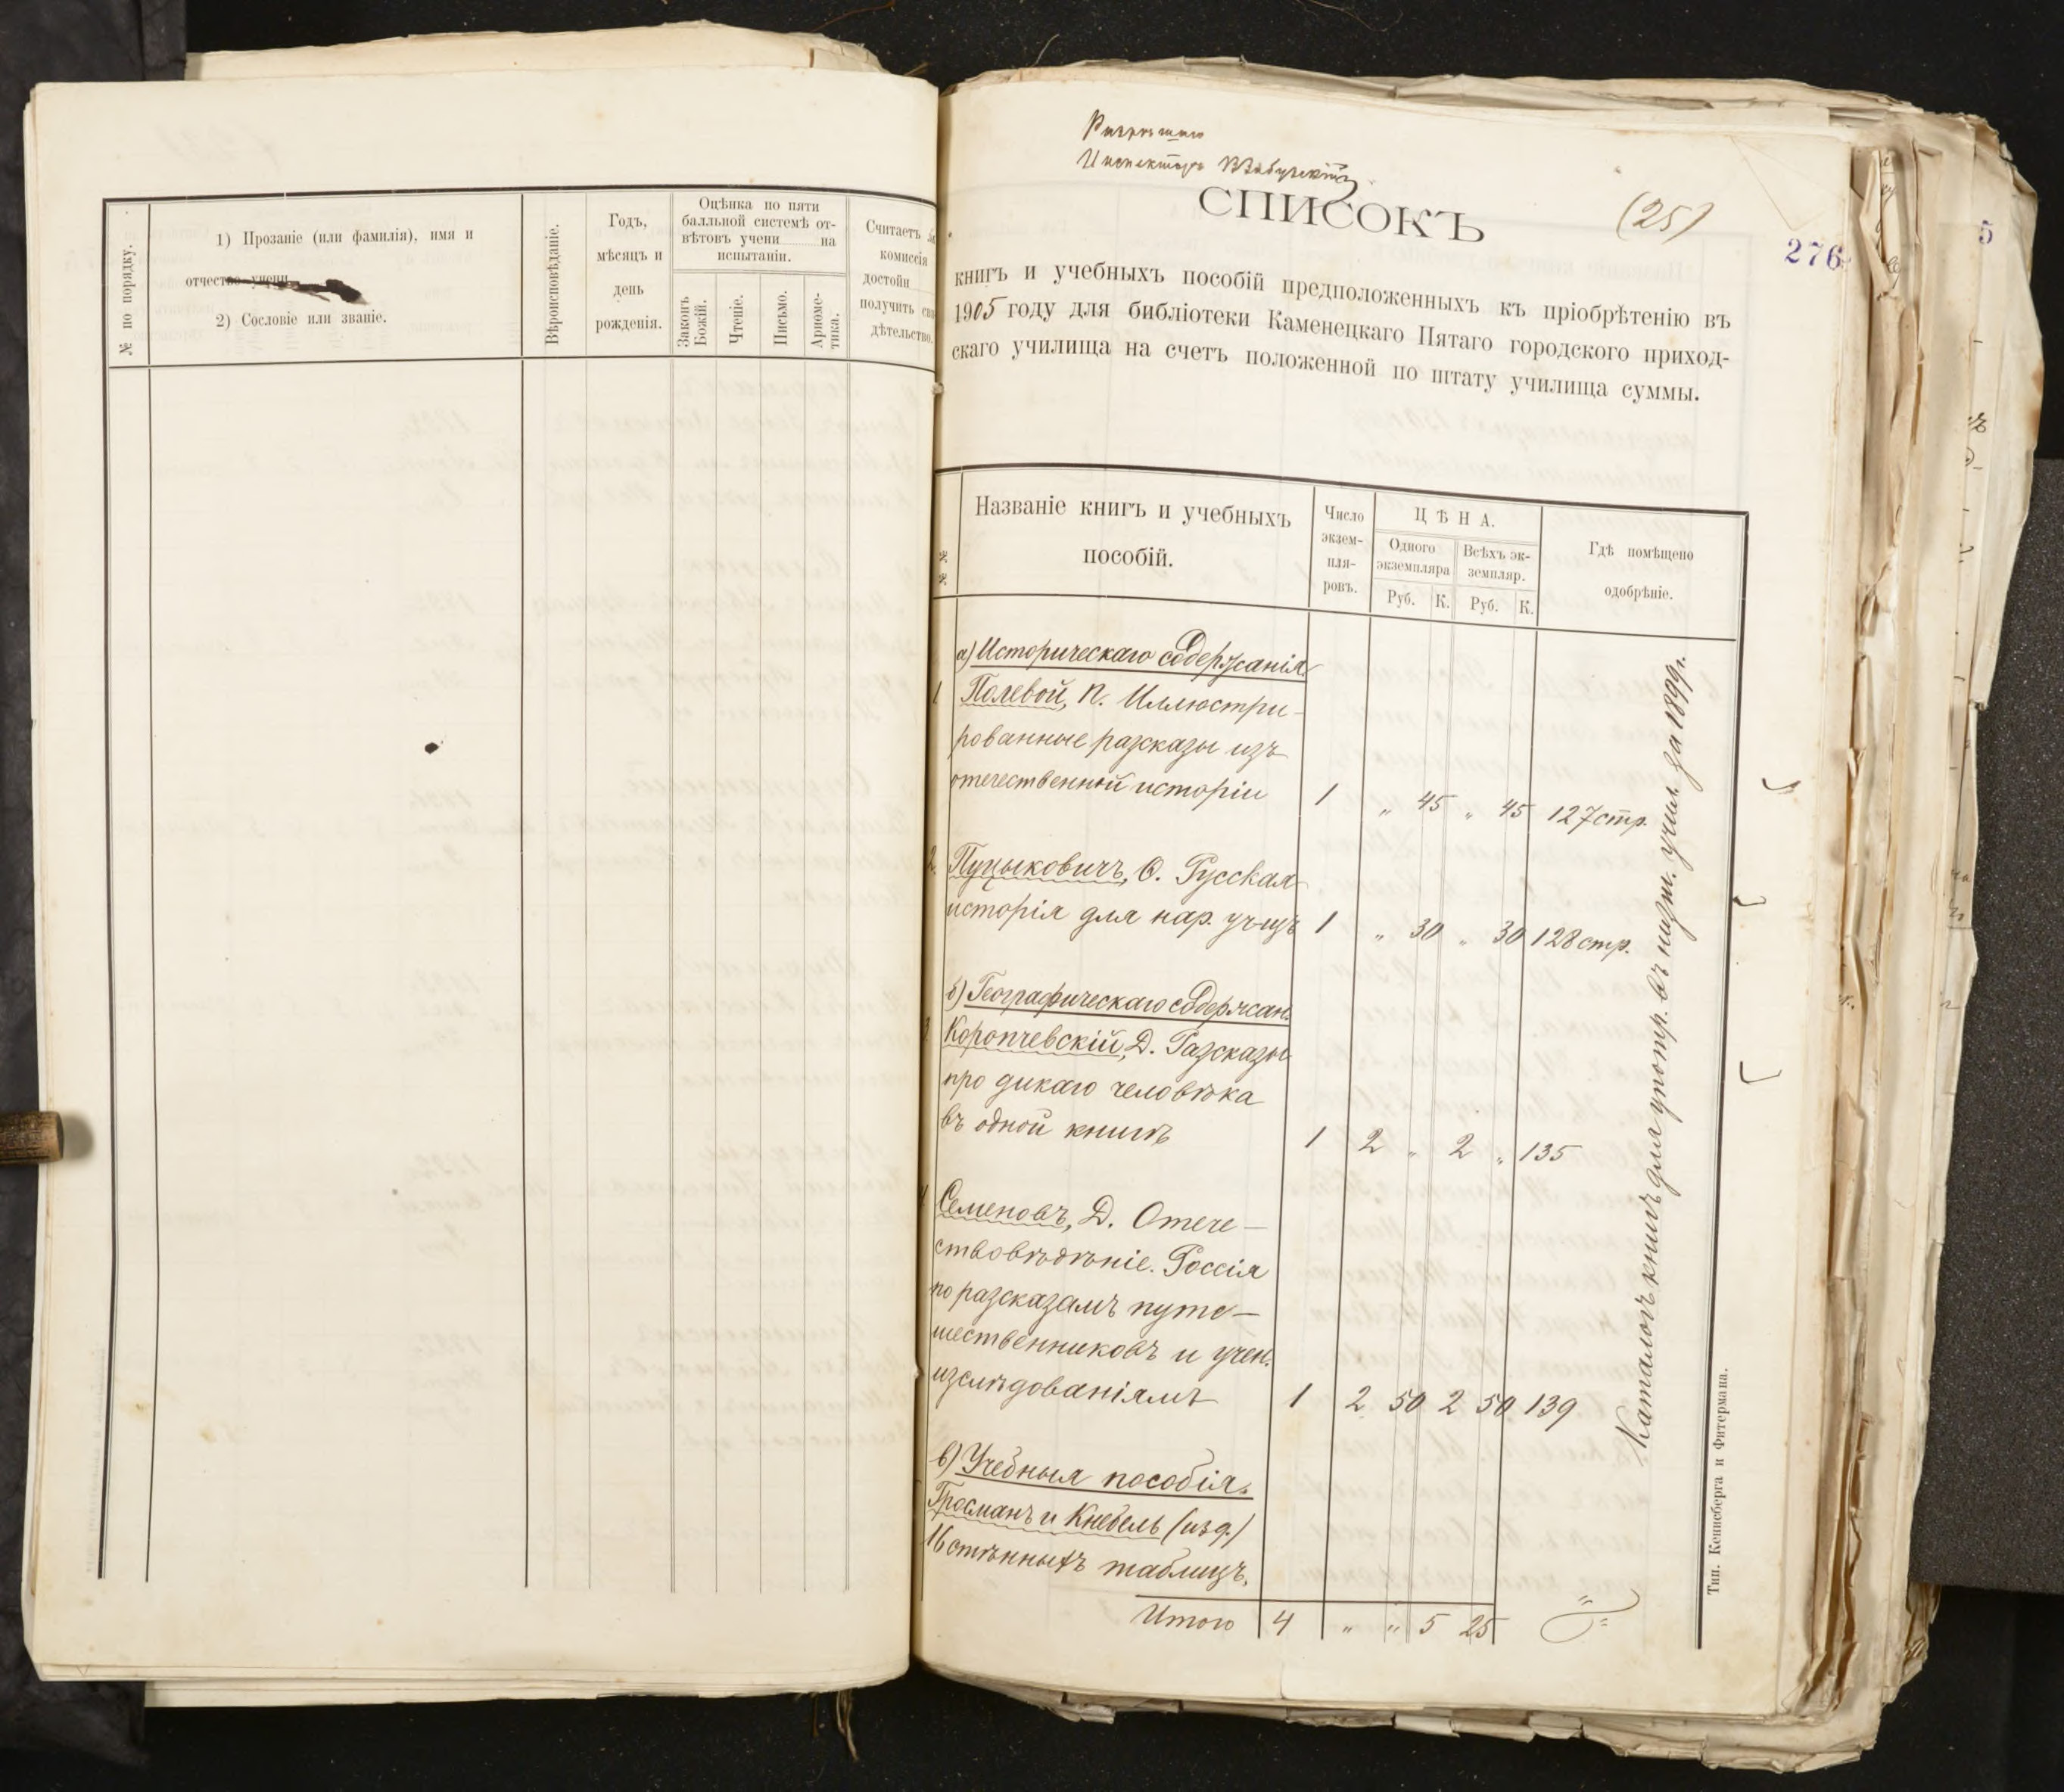 № по порядку.
1) Прозаніе (или фамилія), имя и
отчество учени
2) Сословіе или званіе.
Вѣроисповѣданіе.
Годъ,
мѣсяцъ и
день
рожденія.
Оцѣнка по пяти
балльной системѣ от-
вѣтовъ учени на
испытаніи.
Законъ
Божій.
Чтеніе.
Письмо.
Ариѳме-
тика.
Считаетъ
комиссія
достойн
получить сви
дѣтельство.
Инспекторъ
СПИСОКЪ
(25)
276
5
книгъ и учебныхъ пособій предположенныхъ къ пріобрѣтенію въ
1905 году для библіотеки Каменецкаго Пятаго городского приход-
скаго училища на счетъ положенной по штату училища суммы.
№ №
Названіе книгъ и учебныхъ
пособій.
Число
экзем-
пля-
ровъ.
ЦѢНА.
Одного
экземпляра
Всѣхъ эк-
земпляр.
Руб. К. Руб. К.
Гдѣ помѣщено
одобрѣніе.
а) Историческаго содержанія.
1 Полевой, П. Иллюстри-
рованные разсказы изъ
отечественной исторіи 1 " 45 " 45 127 стр.
2. Пуцыковичъ, Ѳ. Русская
исторія для нар. уч-щъ 1 " 30 " 30 128 стр.
б) Географическаго содержан.
3 Коропчевскій, Д. Разсказы
про дикаго человѣка
въ одной книгѣ 1 2 " 2 " 135
4 Семеновъ, Д. Отече-
ствовѣдѣніе. Россія
по разсказамъ путе-
шественниковъ и учен.
изслѣдованіямъ 1 2 50 2 50 139
в) Учебныя пособія.
Гросманъ и Кнебель (изд.)
16 стѣнныхъ таблицъ.
Итого 4 " " 5 25
Каталогъ книгъ для употр. въ низш. учил. за 1899 г.
Тип. Кенисберга и Фитермана.